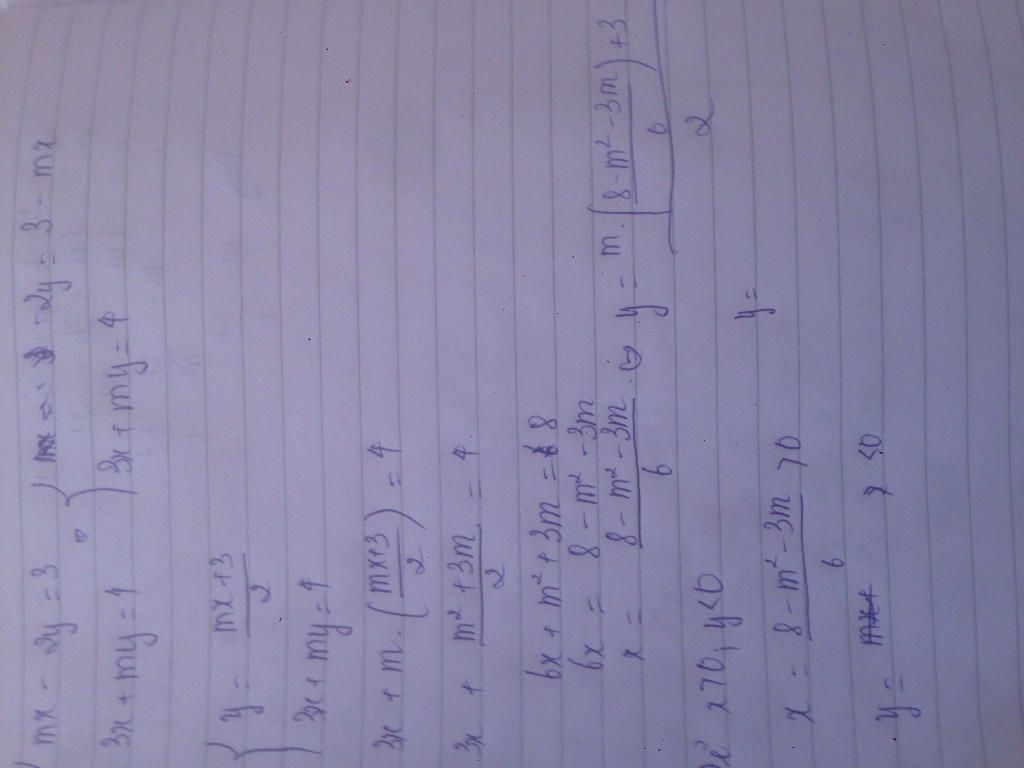 mx - 2y = 3 { -2y = 3 - mx
3x + my = 4 { 3x + my = 4
{ y = (mx+3)/2
{ 3x + my = 4
3x + m.(mx+3)/2) = 4
3x + (m² + 3m)/2 = 4
6x + m² + 3m = 8
6x = 8 - m² - 3m
x = (8 - m² - 3m)/6 . y = (m.(8 - m² - 3m)/6) + 3)/2
x>0, y<0
x = (8 - m² - 3m)/6 >0 y =
y = <0